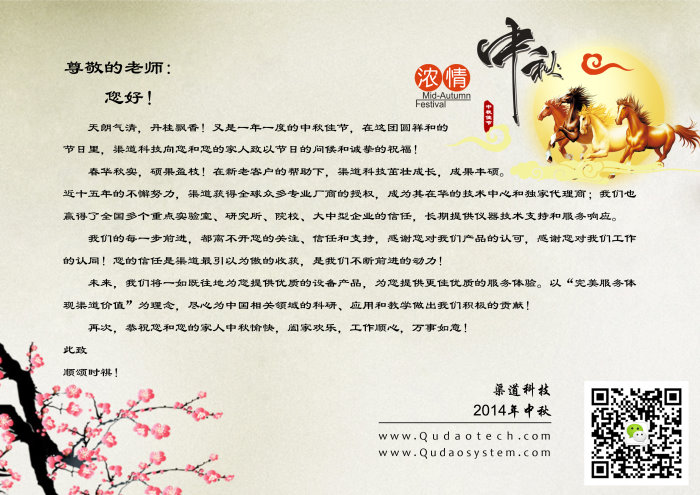 尊敬的老师：
您好！
浓情
中秋
Mid-Autumn
Festival
中秋佳节
天朗气清，丹桂飘香！又是一年一度的中秋佳节，在这团圆祥和的
节日里，渠道科技向您和您的家人致以节日的问侯和诚挚的祝福！
春华秋实，硕果盈枝！在新老客户的帮助下，渠道科技茁壮成长，成果丰硕。
近十五年的不懈努力，渠道获得全球众多专业厂商的授权，成为其在华的技术中心和独家代理商；我们也
赢得了全国多个重点实验室、研究所、院校、大中型企业的信任，长期提供仪器技术支持和服务响应。
我们的每一步前进，都离不开您的关注、信任和支持，感谢您对我们产品的认可，感谢您对我们工作
的认同！您的信任是渠道最引以为傲的收获，是我们不断前进的动力！
未来，我们将一如既往地为您提供优质的设备产品，为您提供更佳优质的服务体验。以“完美服务体
现渠道价值”为理念，尽心为中国相关领域的科研、应用和教学做出我们积极的贡献！
再次，恭祝您和您的家人中秋愉快，阖家欢乐，工作顺心，万事如意！
此致
顺颂时祺！
渠道科技
2014年中秋
www.Qudaotech.com
www.Qudaosystem.com